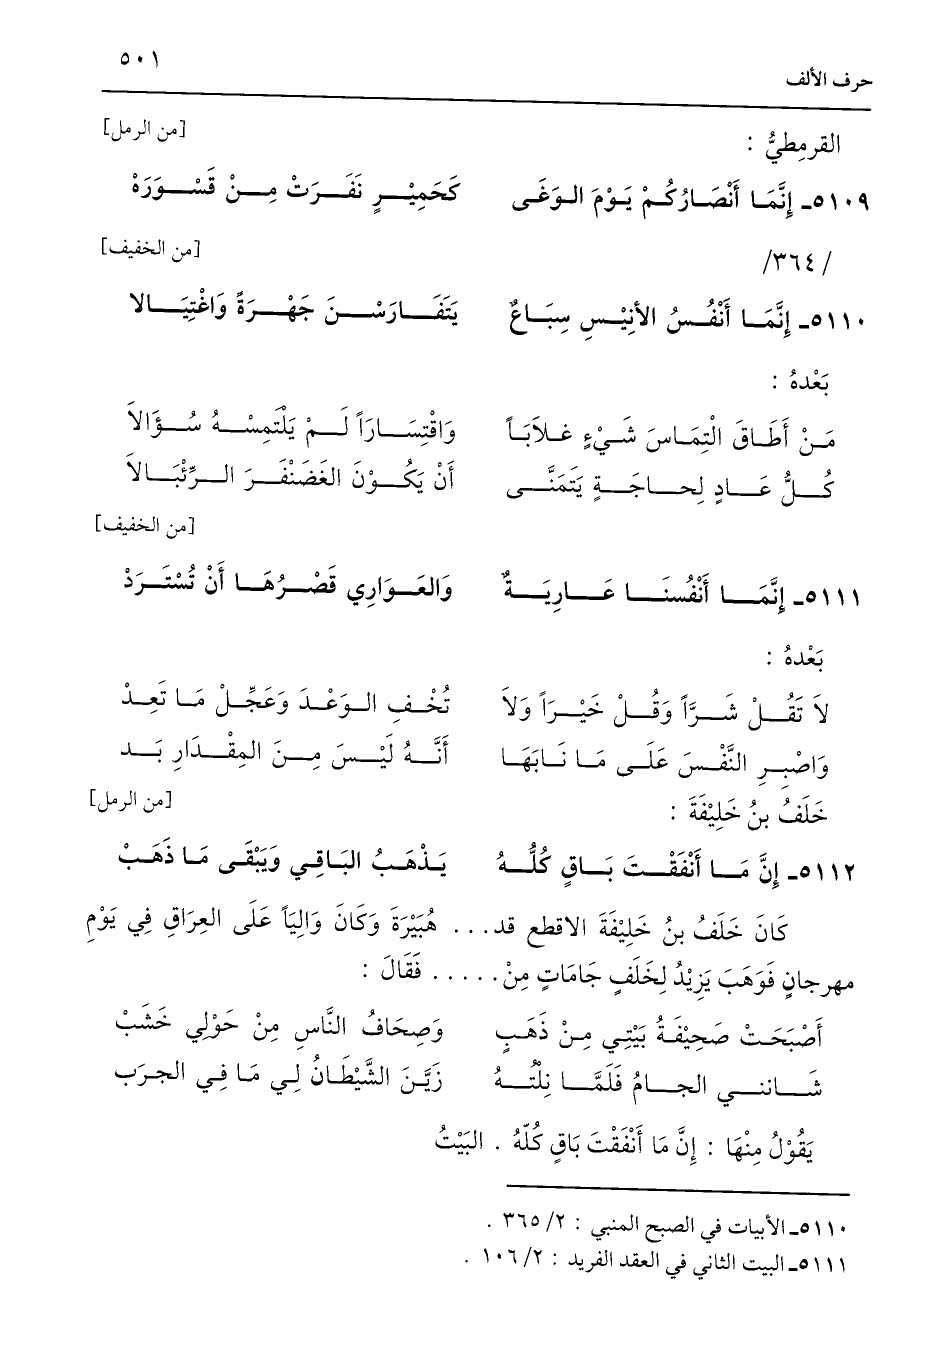 حرف الألف ٥٠١
القرمِطيُّ : [من الرمل]
٥١٠٩ـ إِنَّمَا أَنْصَارُكُمْ يَوْمَ الوَغَى كَحَمِيْرٍ نَفَرَتْ مِنْ قَسْوَرَهْ
/٣٦٤/ [من الخفيف]
٥١١٠ـ إِنَّمَا أَنْفُسُ الأنِيْسِ سِبَاعٌ يَتَفَارَسْنَ جَهْرَةً وَاغْتِيَالا
بَعْدهُ :
مَنْ أَطَاقَ الْتِمَاسَ شَيْءٍ غلاَبَاً وَاقْتِسَارَاً لَمْ يَلْتَمِسْهُ سُؤَالاَ
كُلُّ غَادٍ لِحاجَةٍ يَتَمَنَّى أَنْ يَكُوْنَ الغَضَنْفَرَ الرِّئْبَالاَ
[من الخفيف]
٥١١١ـ إِنَّمَا أَنْفُسنَا عَارِيَةٌ وَالعَوَارِي قَصْرُهَا أَنْ تُسْتَرَدْ
بَعْدهُ :
لاَ تَقُلْ شَرَّاً وَقُلْ خَيْرَاً وَلاَ تُخْفِ الوَعْدَ وَعَجِّلْ مَا تَعِدْ
وَاصْبِرِ النَّفْسَ عَلَى مَا نَابَهَا أَنَّهُ لَيْسَ مِنَ المِقْدَارِ بَد
خَلَفُ بنُ خَلِيْفَةَ : [من الرمل]
٥١١٢ـ إِنَّ مَا أَنْفَقْتَ بَاقٍ كُلُّهُ يَذْهَبُ البَاقِي وَيَبْقَى مَا ذَهَبْ
كَانَ خَلَفُ بنُ خَلِيْفَةَ الاقطع قد... هُبَيْرَةَ وَكَانَ وَالِيَاً عَلَى العِرَاقِ فِي يَوْمِ
مهرجانٍ فَوَهَبَ يَزِيْدُ لِخَلَفٍ جَامَاتٍ مِنْ..... فَقَالَ :
أَصْبَحَتْ صَحِيْفَةُ بَيْتِي مِنْ ذَهَبٍ وَصِحَافُ النَّاسِ مِنْ حَوْلِي خَشَبْ
شَاننِي الجامُ فَلَمَّا نِلْتهُ زَيَّنَ الشَّيْطَانُ لِي مَا فِي الجرَب
يَقُوْلُ مِنْهَا : إِنَّ مَا أَنْفَقْتَ بَاقٍ كُلّهُ . البَيْتُ
٥١١٠ـ الأبيات في الصبح المنبي : ٢/ ٣٦٥ .
٥١١١ـ البيت الثاني في العقد الفريد : ٢/ ١٠٦ .